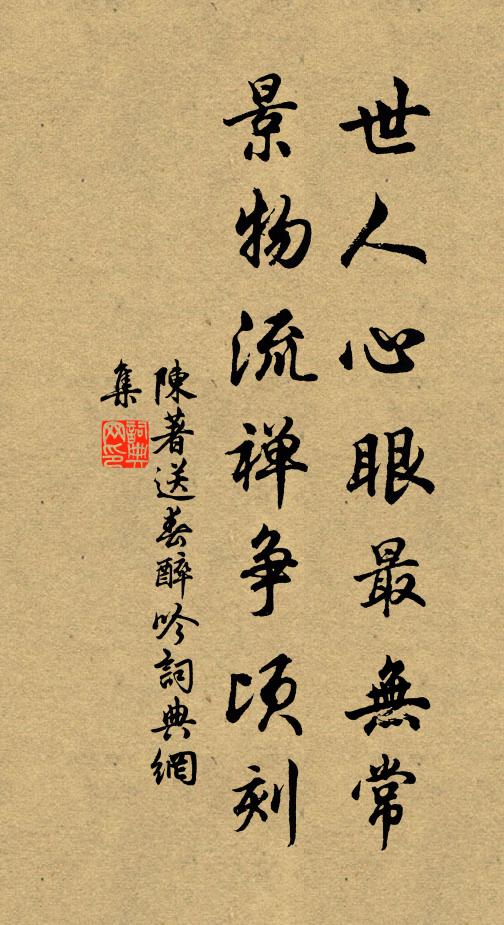 世人心眼最無常
景物流禅争頃刻
陳著送春醉吟詞典網
集
詞典网印